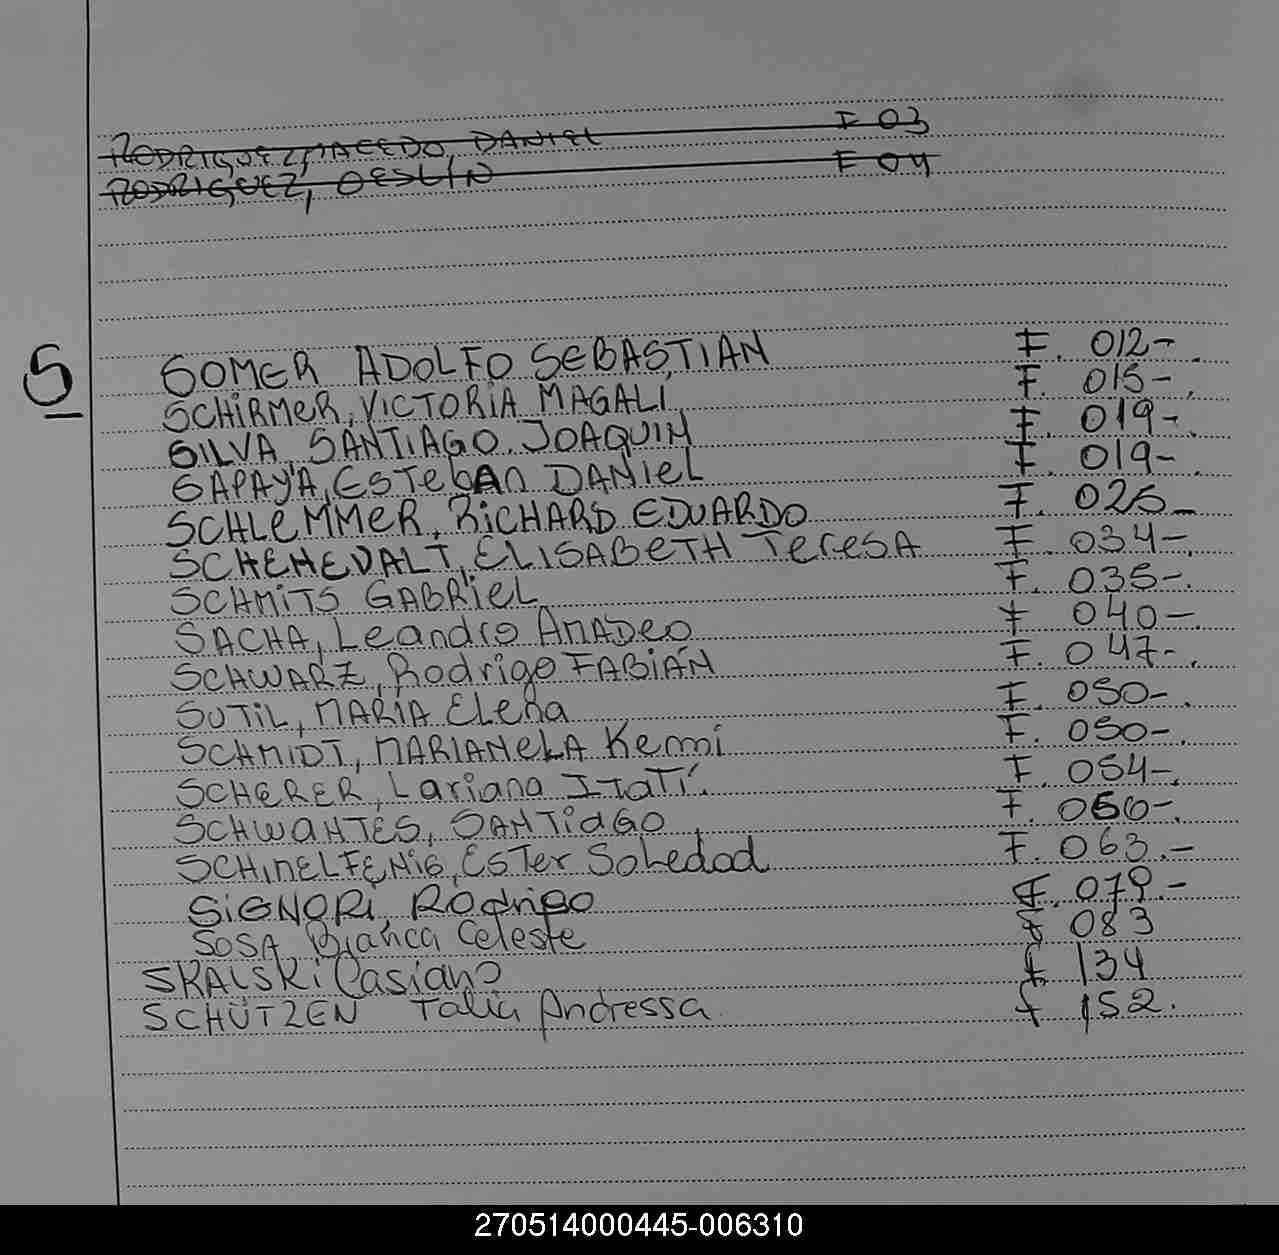 RODRIGUEZ MACEDO, DANIEL F 03
RODRIGUEZ, F 04
S
SOMER ADOLFO SEBASTIAN F. 012-
SCHIRMER, VICTORIA MAGALI F. 015-
SILVA SANTIAGO JOAQUIN F. 019-
SAPAYA, ESTEBAN DANIEL F. 019-
SCHLEMMER, RICHARD EDUARDO F. 025-
SCHEHEVALT, ELISABETH TERESA F. 034-
SCHMITS GABRIEL F. 035-
SACHA, Leandro AMADEO F 040-
SCHWARZ, Rodrigo FABIÁN F. 047-
SUTIL, MARIA Elena F. 050-
SCHMIDT, MARIANELA Kemmi F. 050-
SCHERER, Lariana ITATÍ. F. 054-
SCHWANTES, SANTIAGO F. 060-
SCHIMELFENIG, ESTer Soledad F. 063.-
SIGNORI, Rodrigo F. 079.-
SOSA Bianca Celeste F 083
SKALSKI Casiano F. 134
SCHÜTZEN Talia Andressa F 152.
270514000445-006310